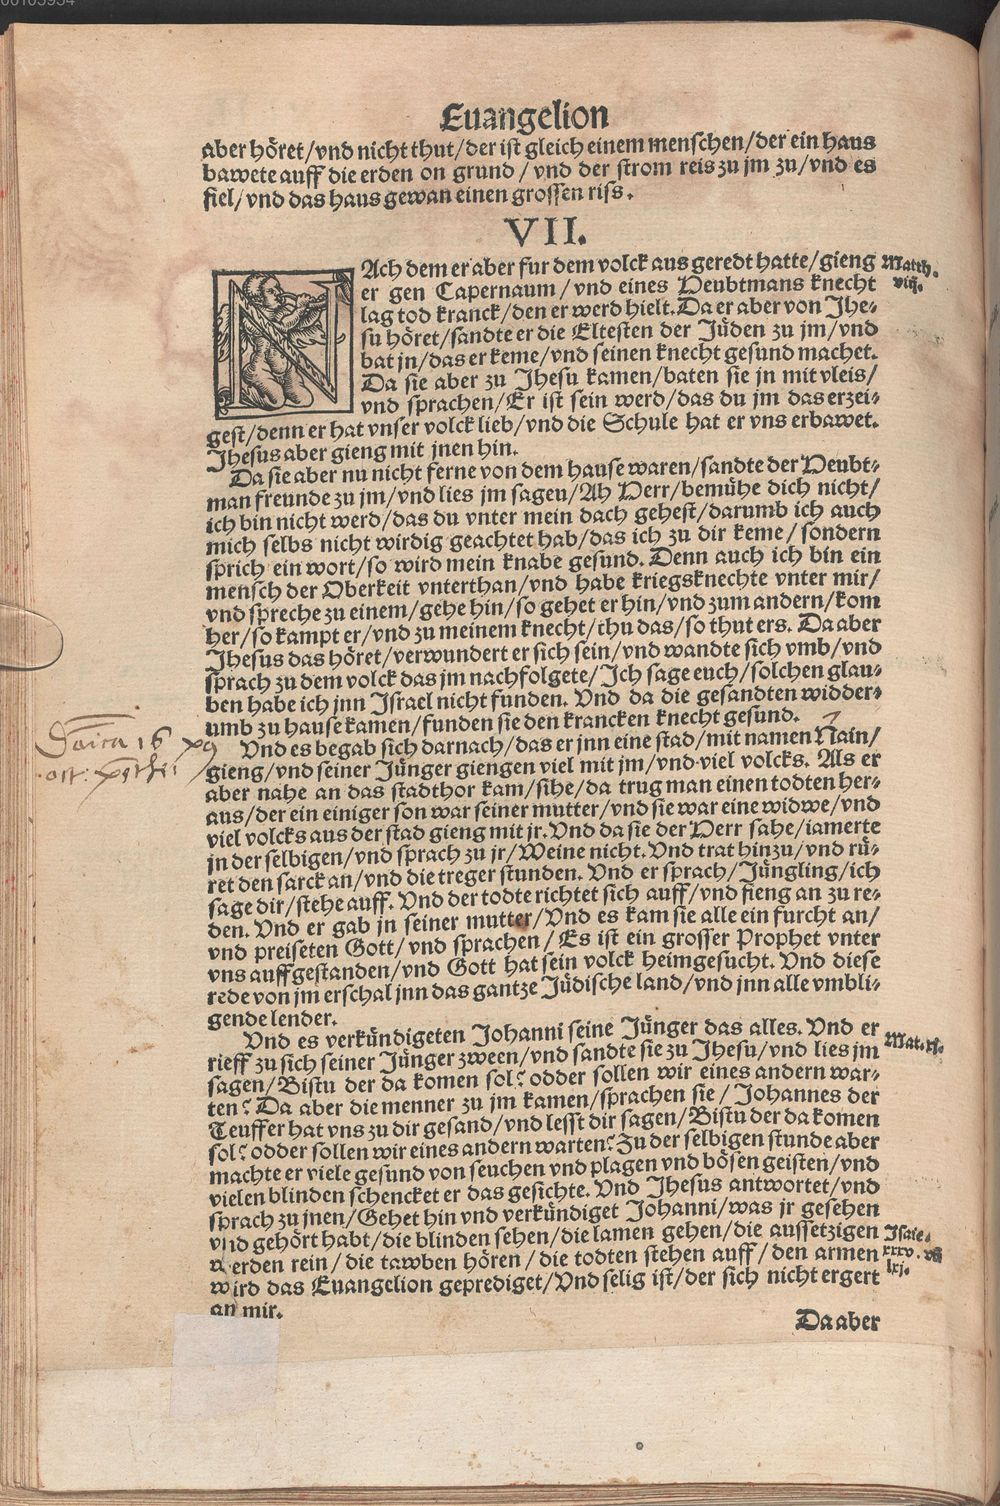 00103934
Euangelion
aber höret/vnd nicht thut/der ist gleich einem menschen/der ein haus
bawete auff die erden on grund/vnd der strom reis zu jm zu/vnd es
fiel/vnd das haus gewan einen grossen riss.
VII.
NAch dem er aber fur dem volck ausgeredt hatte/gieng Matth.
er gen Capernaum/vnd eines Heubtmans knecht viij.
lag tod kranck/den er werd hielt. Da er aber von Jhe-
su höret/sandte er die Eltesten der Jüden zu jm/vnd
bat jn/das er keme/vnd seinen knecht gesund machet.
Da sie aber zu Jhesu kamen/baten sie jn mit vleis/
vnd sprachen/Er ist sein werd/das du jm das erzei-
gest/denn er hat vnser volck lieb/vnd die Schule hat er vns erbawet.
Jhesus aber gieng mit jnen hin.
Da sie aber nu nicht ferne von dem hause waren/sandte der Heubt-
man freunde zu jm/vnd lies jm sagen/Ah Herr/bemühe dich nicht/
ich bin nicht werd/das du vnter mein dach gehest/darumb ich auch
mich selbs nicht wirdig geachtet hab/das ich zu dir keme/sondern
sprich ein wort/so wird mein knabe gesund. Denn auch ich bin ein
mensch der Oberkeit vnterthan/vnd habe kriegsknechte vnter mir/
vnd spreche zu einem/gehe hin/so gehet er hin/vnd zum andern/kom
her/so kompt er/vnd zu meinem knecht/thu das/so thut ers. Da aber
Jhesus das höret/verwundert er sich sein/vnd wandte sich vmb/vnd
sprach zu dem volck das jm nachfolgete/Ich sage euch/solchen glau-
ben habe ich jnn Israel nicht funden. Vnd da die gesandten widder-
umb zu hause kamen/funden sie den krancken knecht gesund.
Vnd es begab sich darnach/das er jnn eine stad/mit namen Nain/
gieng/vnd seiner Jünger giengen viel mit jm/vnd viel volcks. Als er
aber nahe an das stadthor kam/sihe/da trug man einen todten her-
aus/der ein einiger son war seiner mutter/vnd sie war eine widwe/vnd
viel volcks aus der stad gieng mit jr. Vnd da sie der Herr sahe/iamerte
jn der selbigen/vnd sprach zu jr/Weine nicht. Vnd trat hinzu/vnd rü-
ret den sarck an/vnd die treger stunden. Vnd er sprach/Jüngling/ich
sage dir/stehe auff. Vnd der todte richtet sich auff/vnd fieng an zu re-
den. Vnd er gab jn seiner mutter/Vnd es kam sie alle ein furcht an/
vnd preiseten Gott/vnd sprachen/Es ist ein grosser Prophet vnter
vns auffgestanden/vnd Gott hat sein volck heimgesucht. Vnd diese
rede von jm erschal jnn das gantze Jüdische land/vnd jnn alle vmbli-
gende lender.
Vnd es verkündigeten Johanni seine Jünger das alles. Vnd er Mat. xi.
rieff zu sich seiner Jünger zween/vnd sandte sie zu Jhesu/vnd lies jm
sagen/Bistu der da komen sol? odder sollen wir eines andern war-
ten? Da aber die menner zu jm kamen/sprachen sie/Johannes der
Teuffer hat vns zu dir gesand/vnd lesst dir sagen/Bistu der da komen
sol? odder sollen wir eines andern warten? Zu der selbigen stunde aber
machte er viele gesund von seuchen vnd plagen vnd bösen geisten/vnd
vielen blinden schencket er das gesichte. Vnd Jhesus antwortet/vnd
sprach zu jnen/Gehet hin vnd verkündiget Johanni/was jr gesehen
vnd gehört habt/die blinden sehen/die lamen gehen/die aussetzigen Isaie.
werden rein/die tawben hören/die todten stehen auff/den armen xxxv. vñ
wird das Euangelion geprediget/Vnd selig ist/der sich nicht ergert lxj.
an mir.
Da aber